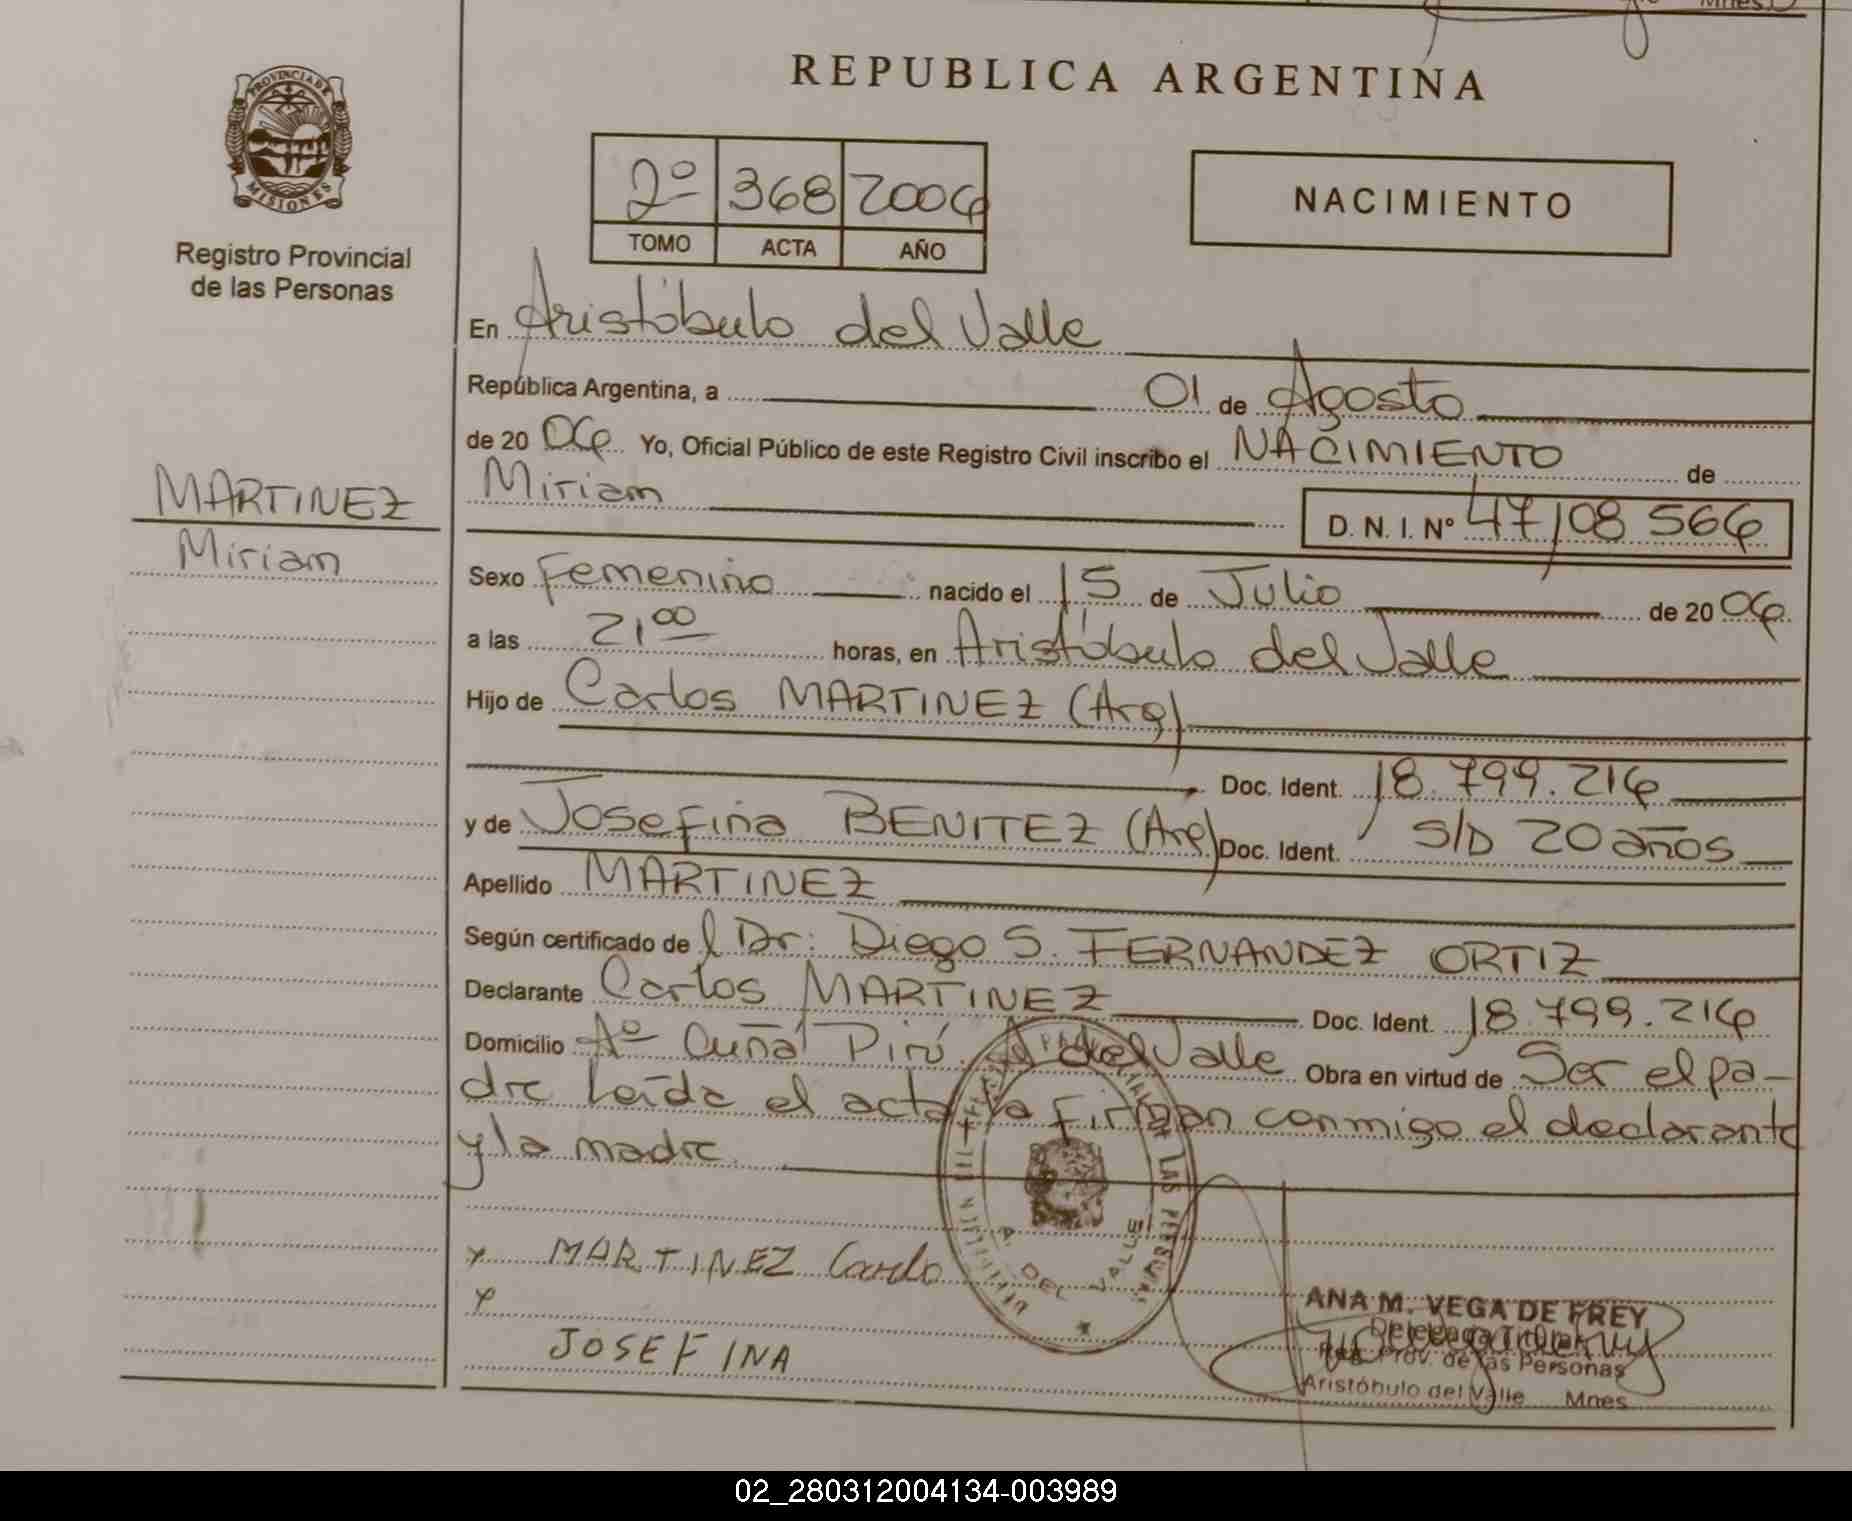 Mnes.
REPUBLICA ARGENTINA
PROVINCIA DE
MISIONES
Registro Provincial
de las Personas
2º 368 2006
TOMO ACTA AÑO
NACIMIENTO
En Aristóbulo del Valle
República Argentina, a 01 de Agosto
de 20 06 Yo, Oficial Público de este Registro Civil inscribo el NACIMIENTO de
MARTINEZ
Miriam
Miriam D. N. I. Nº 47108566
Sexo Femenino nacido el 15 de Julio de 20 06
a las 21,00 horas, en Aristóbulo del Valle
Hijo de Carlos MARTINEZ (Arg)
Doc. Ident. 18.799.216
y de Josefina BENITEZ (Arg) Doc. Ident. S/D 20 años
Apellido MARTINEZ
Según certificado de l Dr: Diego S. FERNANDEZ ORTIZ
Declarante Carlos MARTINEZ Doc. Ident. 18.799.216
Domicilio Aº Cuñá Pirú A. del Valle Obra en virtud de Ser el pa-
dre Leída el acta la firman conmigo el declarante
y la madre
x MARTINEZ Carlo
x
JOSEFINA
LAS PERSONAS
A. DEL VALLE
ANA M. VEGA DE FREY
Delegada Titular
Reg. Prov. de las Personas
Aristóbulo del Valle Mnes
02_280312004134-003989